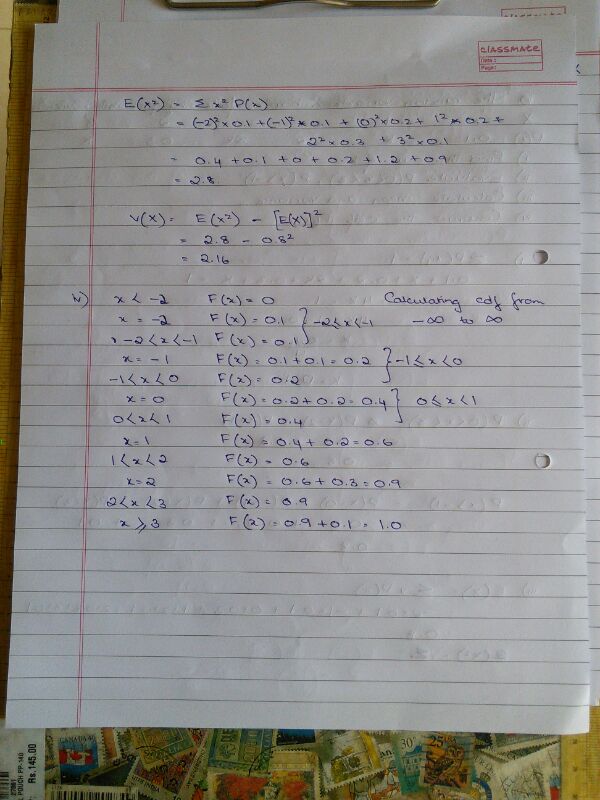 classmate
Date :
Page :
E(x²) = Σ x² P(x)
= (-2)²×0.1 + (-1)²×0.1 + (0)²×0.2 + 1²×0.2 +
2²×0.3 + 3²×0.1
= 0.4 + 0.1 + 0 + 0.2 + 1.2 + 0.9
= 2.8
V(X) = E(x²) - [E(X)]²
= 2.8 - 0.8²
= 2.16
iv) x < -2 F(x) = 0 Calculating cdf from
x = -2 F(x) = 0.1 } -2≤x<-1 -∞ to ∞
-2<x<-1 F(x) = 0.1
x = -1 F(x) = 0.1 + 0.1 = 0.2 } -1≤x<0
-1<x<0 F(x) = 0.2
x = 0 F(x) = 0.2 + 0.2 = 0.4 } 0≤x<1
0<x<1 F(x) = 0.4
x = 1 F(x) = 0.4 + 0.2 = 0.6
1<x<2 F(x) = 0.6
x = 2 F(x) = 0.6 + 0.3 = 0.9
2<x<3 F(x) = 0.9
x ≥ 3 F(x) = 0.9 + 0.1 = 1.0
POUCH PP-140
Rs.145.00
CANADA
INDIA
30